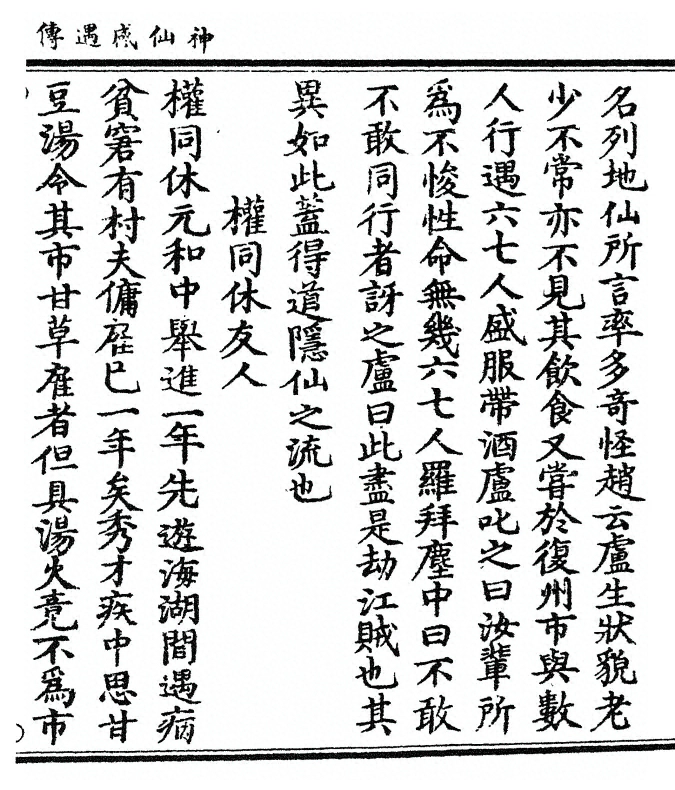 神仙感遇傳
名列地仙所言率多奇怪趙云盧生狀貌老
少不常亦不見其飲食又嘗於復州市與數
人行遇六七人盛服帶酒盧叱之曰汝輩所
為不悛性命無幾六七人羅拜塵中曰不敢
不敢同行者訝之盧曰此盡是劫江賊也其
異如此蓋得道隱仙之流也
權同休友人
權同休元和中舉進一年先遊海湖間遇病
貧窘有村夫傭雇已一年矣秀才疾中思甘
豆湯令其市甘草雇者但具湯火竟不為市